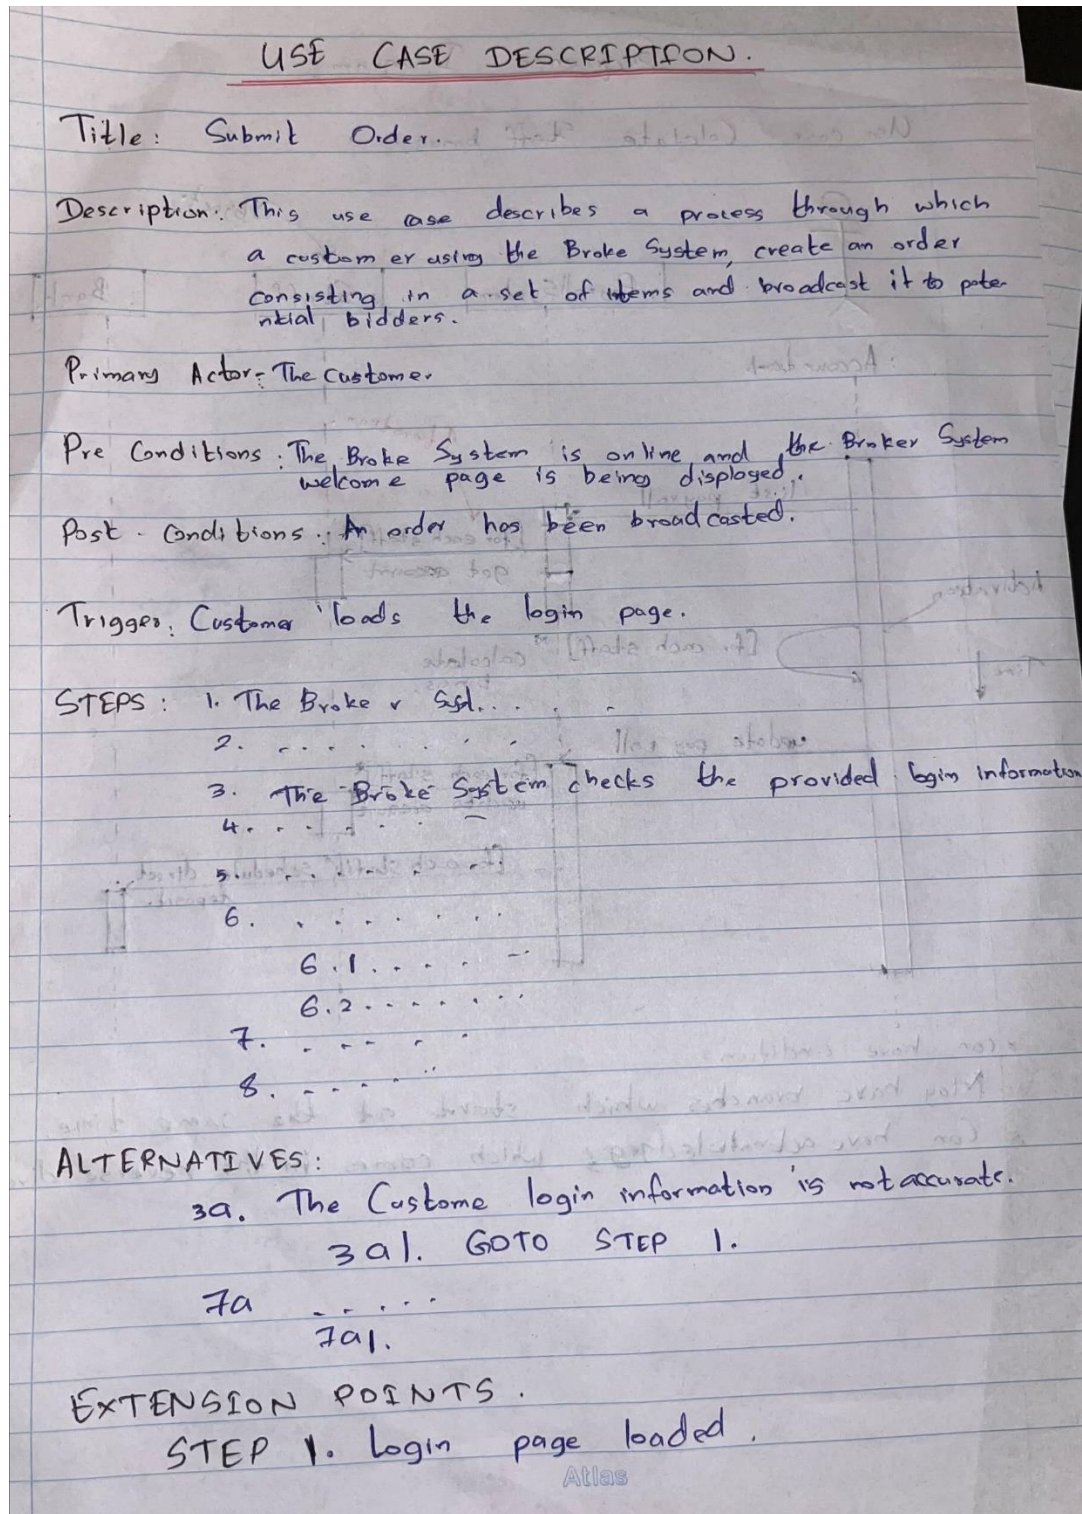 USE CASE DESCRIPTION.
Title: Submit Order.
Description: This use case describes a process through which
a customer using the Broke System, create an order
consisting in a set of items and broadcast it to pote-
ntial bidders.
Primary Actor: The Customer
Pre Conditions: The Broke System is online and the Broker System
welcome page is being displayed.
Post-Conditions: An order has been broadcasted.
Trigger: Customer loads the login page.
STEPS: 1. The Broker Syst....
2. ........
3. The Broke System checks the provided login information
4. ......
5. ......
6. .......
6.1.....
6.2.......
7. .....
8. ......
ALTERNATIVES:
3a. The Custome login information is not accurate.
3a1. GOTO STEP 1.
7a .....
7a1.
EXTENSION POINTS.
STEP 1. Login page loaded.
Atlas